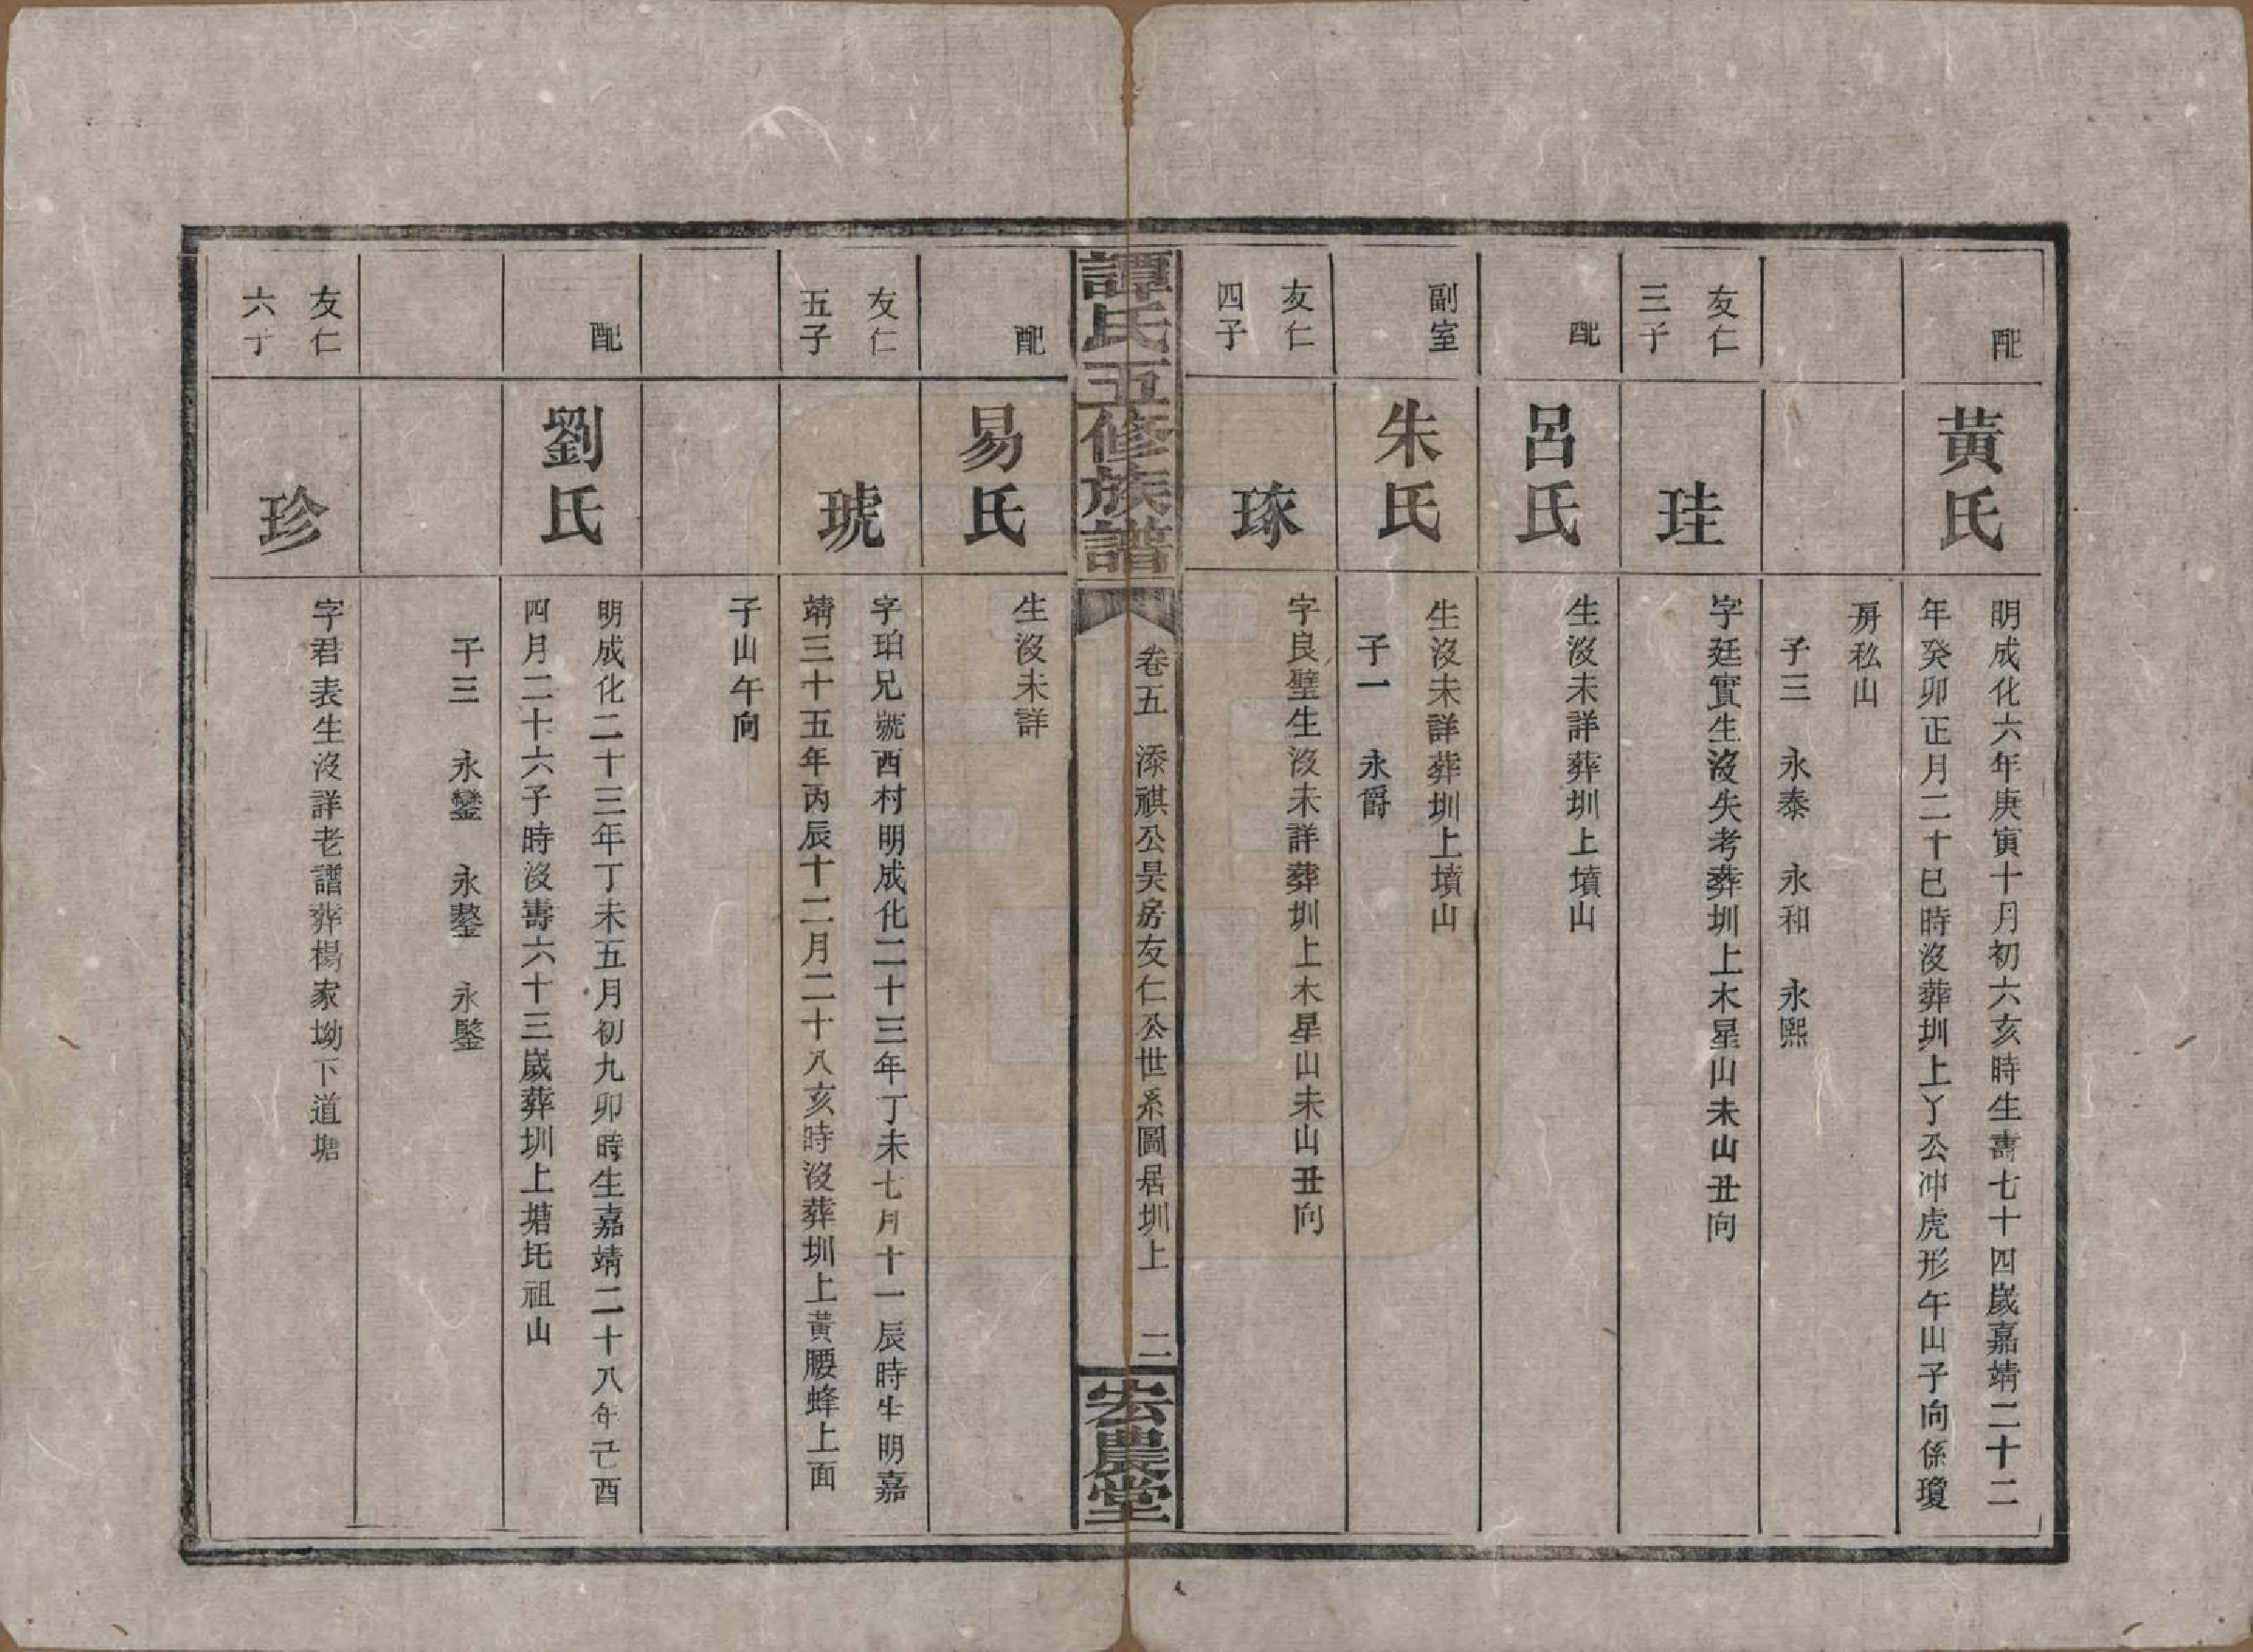 配
黃氏
明成化六年庚寅十月初六亥時生壽七十四歲嘉靖二十二
年癸卯正月二十巳時沒葬圳上丫公冲虎形午山子向係瓊
房私山
子三　永泰　永和　永熙
友仁
三子
珪
字廷實生沒失考葬圳上木星山未山丑向
配
呂氏
生沒未詳葬圳上墳山
副室
朱氏
生沒未詳葬圳上墳山
子一　永爵
友仁
四子
琢
字良璧生沒未詳葬圳上木星山未山丑向
譚氏五修族譜
卷五　添祺公昊房友仁公世系圖居圳上　二
宏農堂
配
易氏
生沒未詳
友仁
五子
琥
字珀兄號西村明成化二十三年丁未七月十一辰時生明嘉
靖三十五年丙辰十二月二十八亥時沒葬圳上黃腰蜂上面
子山午向
配
劉氏
明成化二十三年丁未五月初九卯時生嘉靖二十八年己酉
四月二十六子時沒壽六十三歲葬圳上塘圫祖山
子三　永鑾　永鏊　永鋻
友仁
六子
珍
字君表生沒詳老譜葬楊家坳下道塘